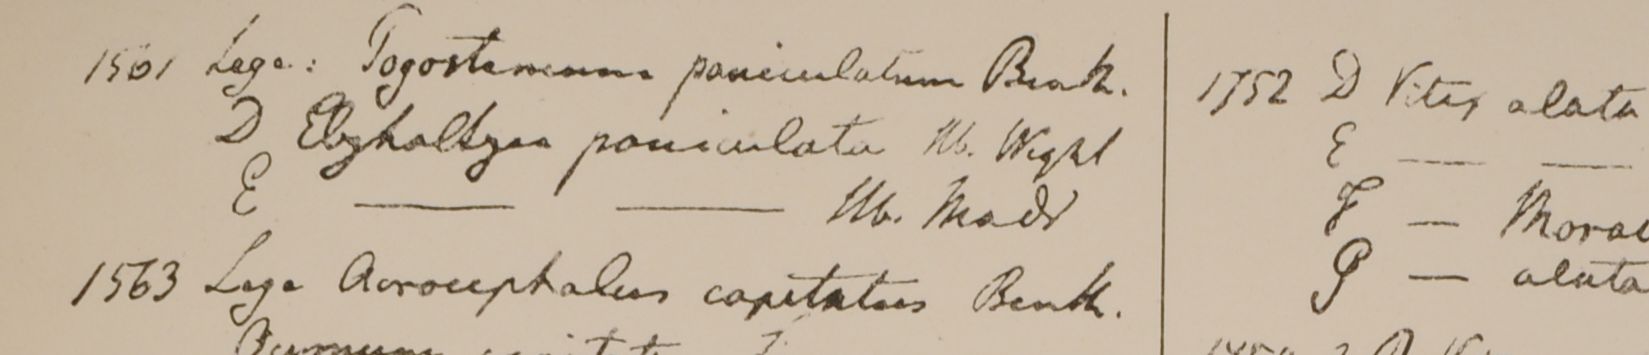 1561 Lege: Pogostemon paniculatum Benth.
D Elsholtzia paniculata Hb. Wight
E — — Hb. Madr
1563 Lege Acrocephalus capitatus Benth.
1752 D Vitex alata
E — —
F —
G — alata